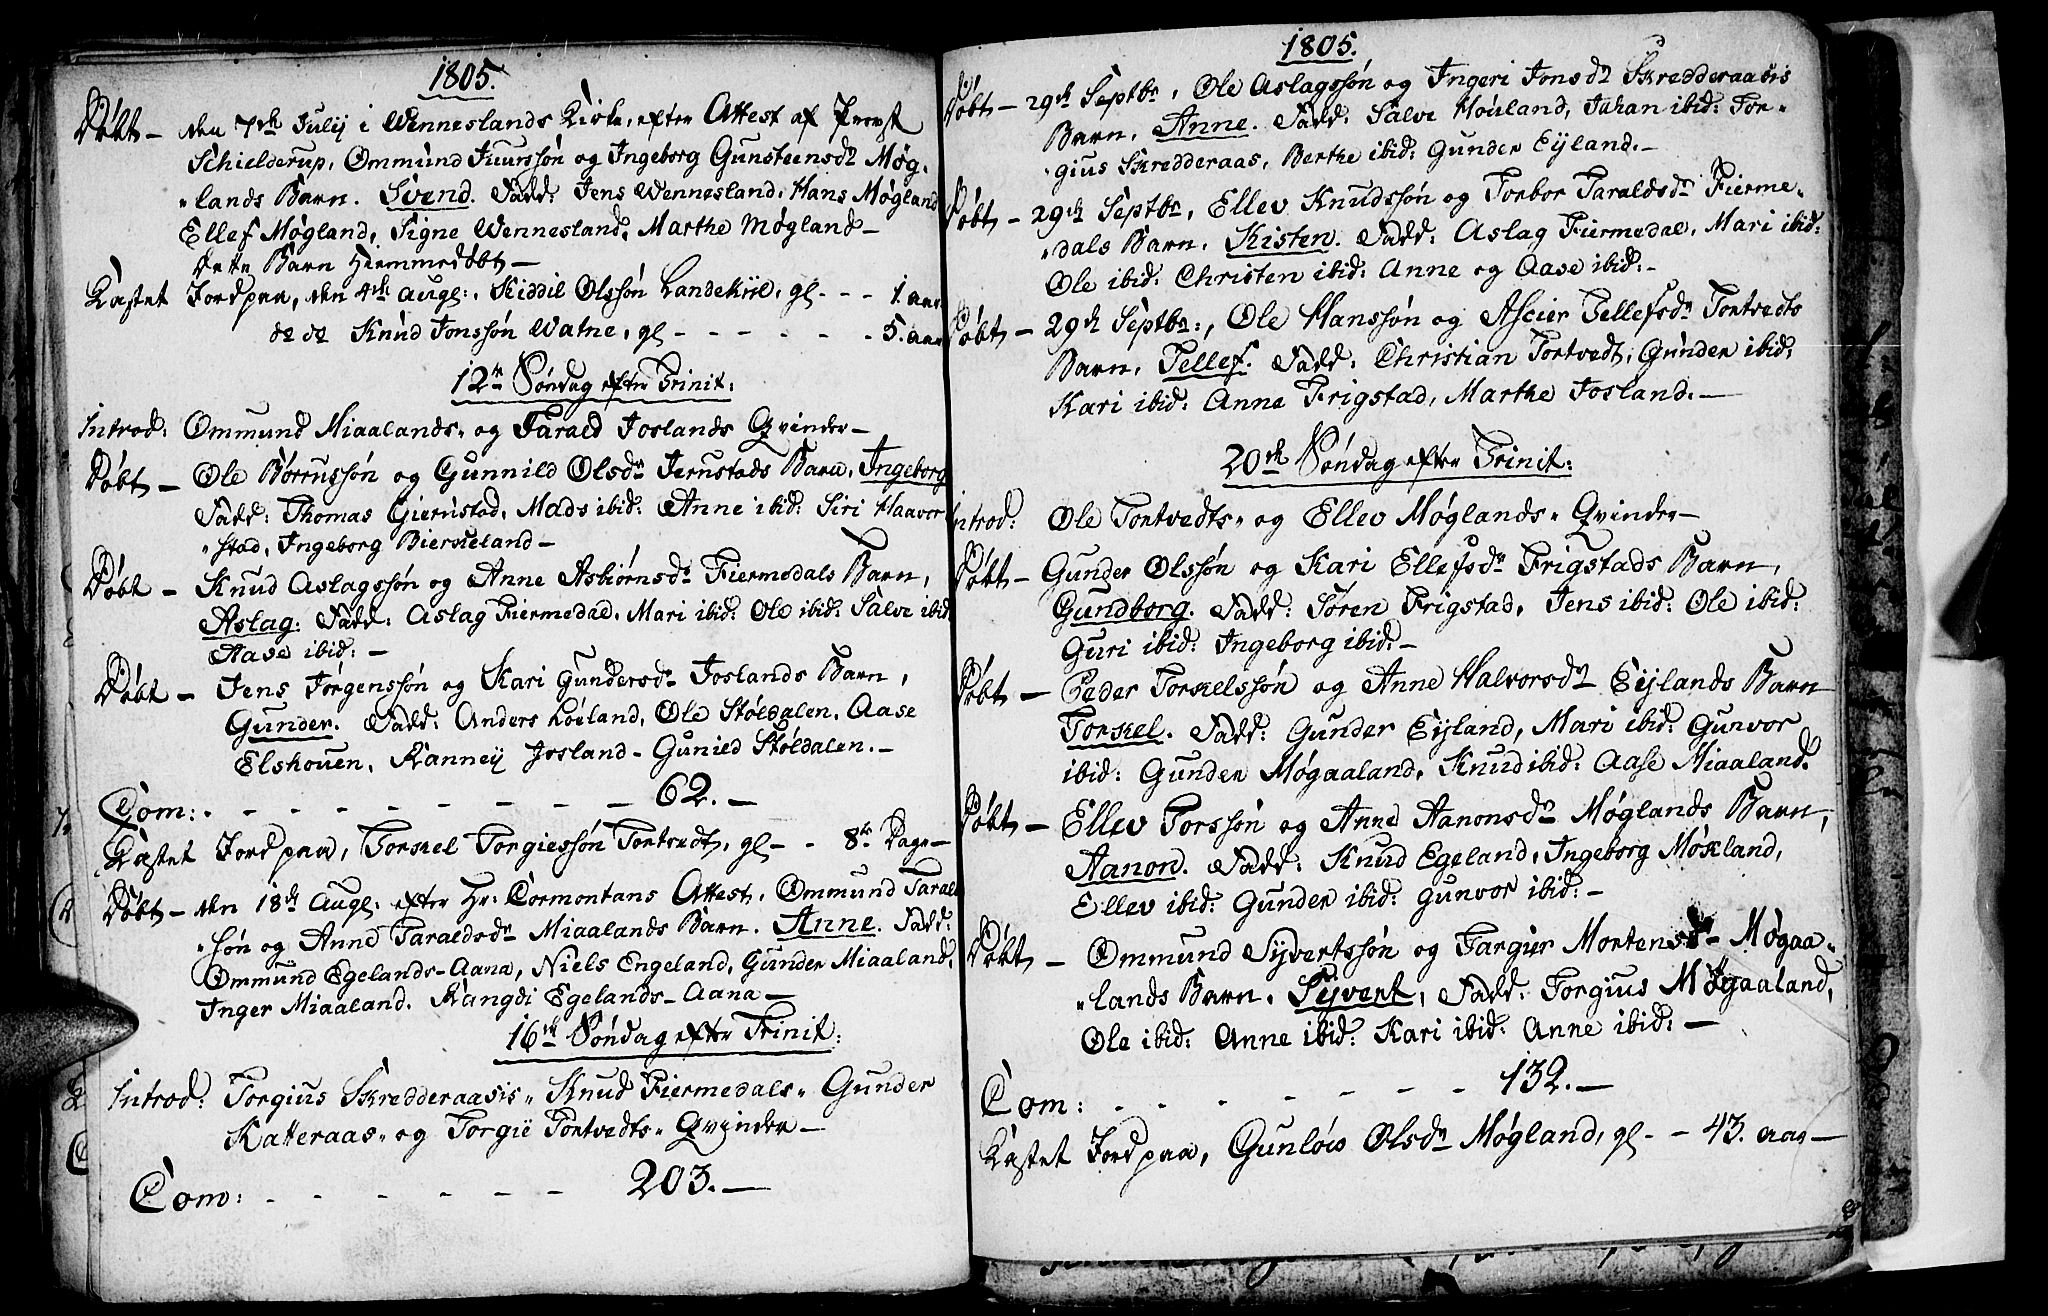 1805.
Døbt – den 7de Julij i Wenneslands Kirke, efter Attest af Provst
Schielderup, Ommund Juurssøn og Ingeborg Gunsteensdr Møg„
„lands Barn. Svend. Fadd: Jens Wennesland, Hans Møgland
Ellef Møgland, Signe Wennesland, Marthe Møgland –
Dete Barn Hiemmedøbt –
Kastet Jord paa, den 4de Augl:, Kiddil Olssøn Landekiil, gl – – – 1. aar
do do Knud Jonssøn Watne, gl – – – – – 5. aar
12te Søndag efter Trinit:
Introd: Ommund Miaalands„ og Tarald Joslands Qvinder –
Døbt – Ole Børrussøn og Gunnild Olsdr Jernstads Barn, Ingeborg
Fadd: Thomas Giernstad, Mads ibid: Anne ibid: Siri Haavor
„stad, Ingeborg Bierkeland –
Døbt – Knud Aslagssøn og Anne Asbiørnsdr Fiermedals Barn,
Aslag. Fadd: Aslag Fiermedal, Mari ibid: Ole ibid: Salve ibid:
Aase ibid: –
Døbt – Jens Jørgenssøn og Kari Gundersdr Joslands Barn,
Gunder. Fadd: Anders Løeland, Ole Støldalen, Aase
Elshouen, Ranneij Josland – Gunied Støldalen. –
Com: – – – – – – – – 62. –
Kastet Jord paa, Torkel Torgiessøn Tortvedt, gl – – 8te Dage –
Døbt – den 18de Augl: efter Hr: Cormontans Attest, Ommund Tarald
„søn og Anne Taraldsdr Miaalands Barn. Anne. Fadd:
Ommund Egelands-Aana, Niels Engeland, Gunder Miaaland,
Inger Miaaland, Rangdi Egelands-Aana –
16de Søndag efter Trinit:
Introd: Torgius Skredderaasis„ Knud Fiermedals„ Gunder
Katteraas„ og Torgie Tortvedts„ Qvinder –
Com: – – – – – – 203. –
1805.
Døbt – 29de Septbr, Ole Aslagssøn og Ingeri Jonsdr Skredderaasis
Barn, Anne. Fadd: Salve Houland, Johan ibid: Tor„
„gius Skredderaas, Berthe ibid: Gunder Eijland. –
Døbt – 29de Septbr, Ellev Knudssøn og Torbor Taraldsdr Fierme„
„dals Barn, Kisten. Fadd: Aslag Fiermedal, Mari ibid:
Ole ibid: Christen ibid: Anne og Aase ibid: –
Døbt – 29de Septbr:, Ole Hanssøn og Ascier Tellefsdr Tortvedts
Barn, Tellef. Fadd: Christian Tortvedt, Gunder ibid:
Kari ibid: Anne Frigstad, Marthe Josland. –
20de Søndag efter Trinit:
Introd: Ole Tortvedts„ og Ellev Møglands„ Qvinder –
Døbt – Gunder Olssøn og Kari Ellefsdr Frigstads Barn,
Gundborg. Fadd: Søren Frigstad, Jens ibid: Ole ibid:
Guri ibid: Ingeborg ibid: –
Døbt – Peder Torkelssøn og Anne Halvorsdr Eijlands Barn
Torkel. Fadd: Gunder Eijland, Mari ibid: Gunvor
ibid: Gunder Møgaaland, Knud ibid: Aase Miaaland.
Døbt – Ellev Torssøn og Anne Aanonsdr Møglands Barn,
Aanon. Fadd: Knud Egeland, Ingeborg Møkland,
Ellev ibid: Gunder ibid: Gunvor ibid: –
Døbt – Ommund Sijvertssøn og Targier Mortensdr Møgaa„
„lands Barn, Sijvert, Fadd: Torgius Møgaaland,
Ole ibid: Anne ibid: Kari ibid: Anne ibid: –
Com: – – – – – – – 132. –
Kastet Jord paa, Gunløis Olsdr Møgland, gl – – 43. aar –